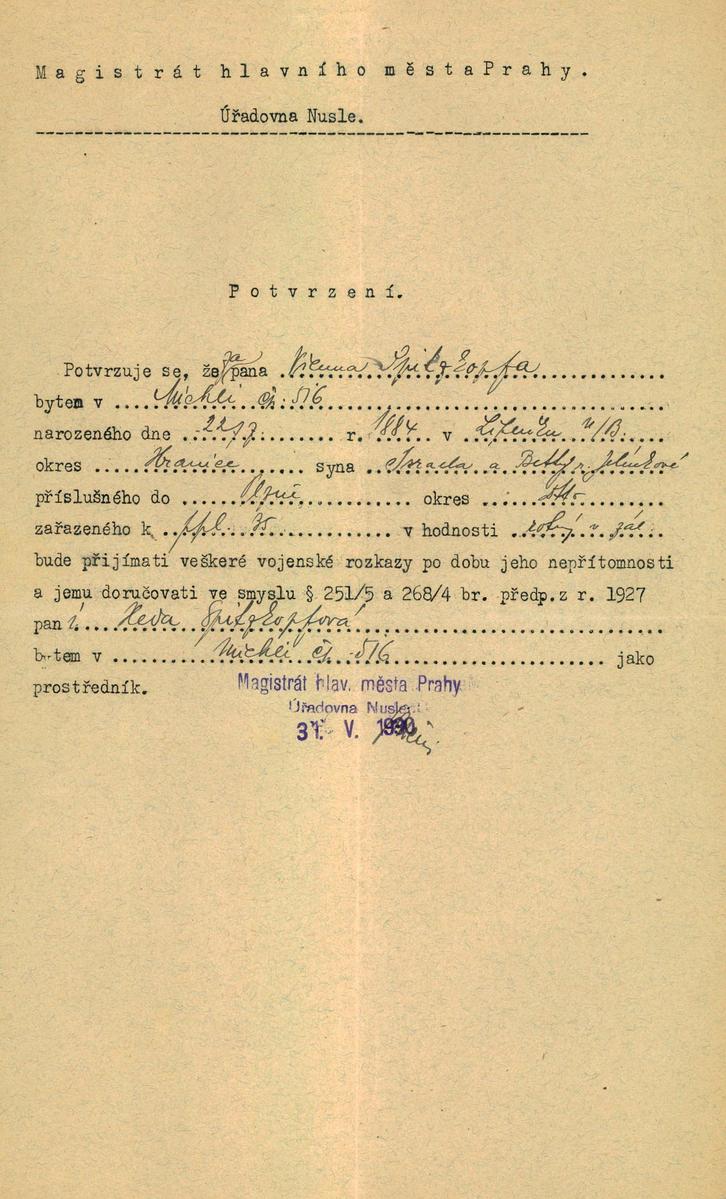 Magistrát hlavního města Prahy.
Úřadovna Nusle.
Potvrzení.
Potvrzuje se, že za pana Spitzkopfa
bytem v Michli čp. 516
narozeného dne r. 1884 v
okres Hranice syna Israela a Betty r.
příslušného do okres dtto
zařazeného k v hodnosti v zál.
bude přijímati veškeré vojenské rozkazy po dobu jeho nepřítomnosti
a jemu doručovati ve smyslu § 251/5 a 268/4 br. předp.z r. 1927
paní Heda Spitzkopfová
bytem v Michli čp. 516 jako
prostředník.
Magistrát hlav. města Prahy
Úřadovna Nusle
31. V.